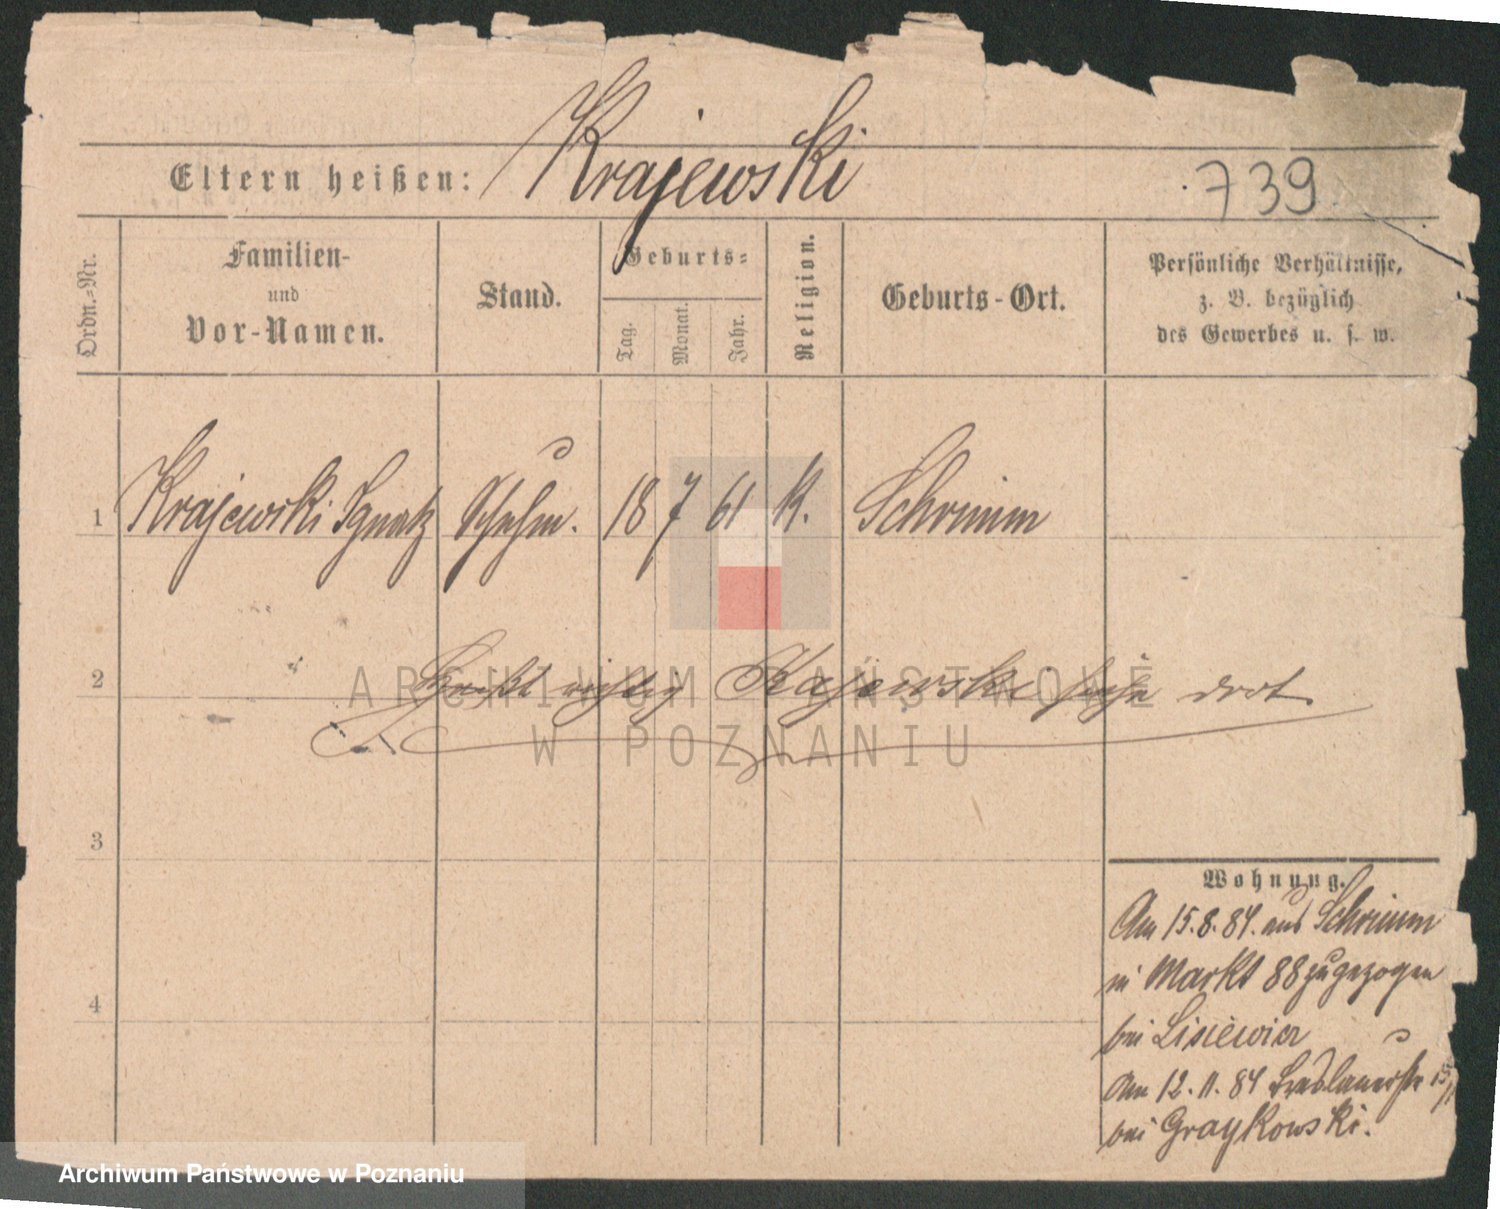 Krajewski
Eltern heißen:
739
Ordn.-Nr.
Familien-
und
Vor-Namen.
Stand.
Geburts-
Tag.
Monat.
Jahr.
Religion.
Geburts-Ort.
Persönliche Verhältnisse,
z. B. bezüglich
des Gewerbes u. s. w.
1 Krajewski Ignatz Schuhm. 18 7 61 K. Schrimm
2 Heißt richtig Kajewski siehe dort
3
4
Wohnung.
Am 15.8.84. aus Schrimm
in Markt 88 zugezogen
bei
Am 12.11.84 Breslauerstr
bei
ARCHIWUM PAŃSTWOWE
W POZNANIU
Archiwum Państwowe w Poznaniu